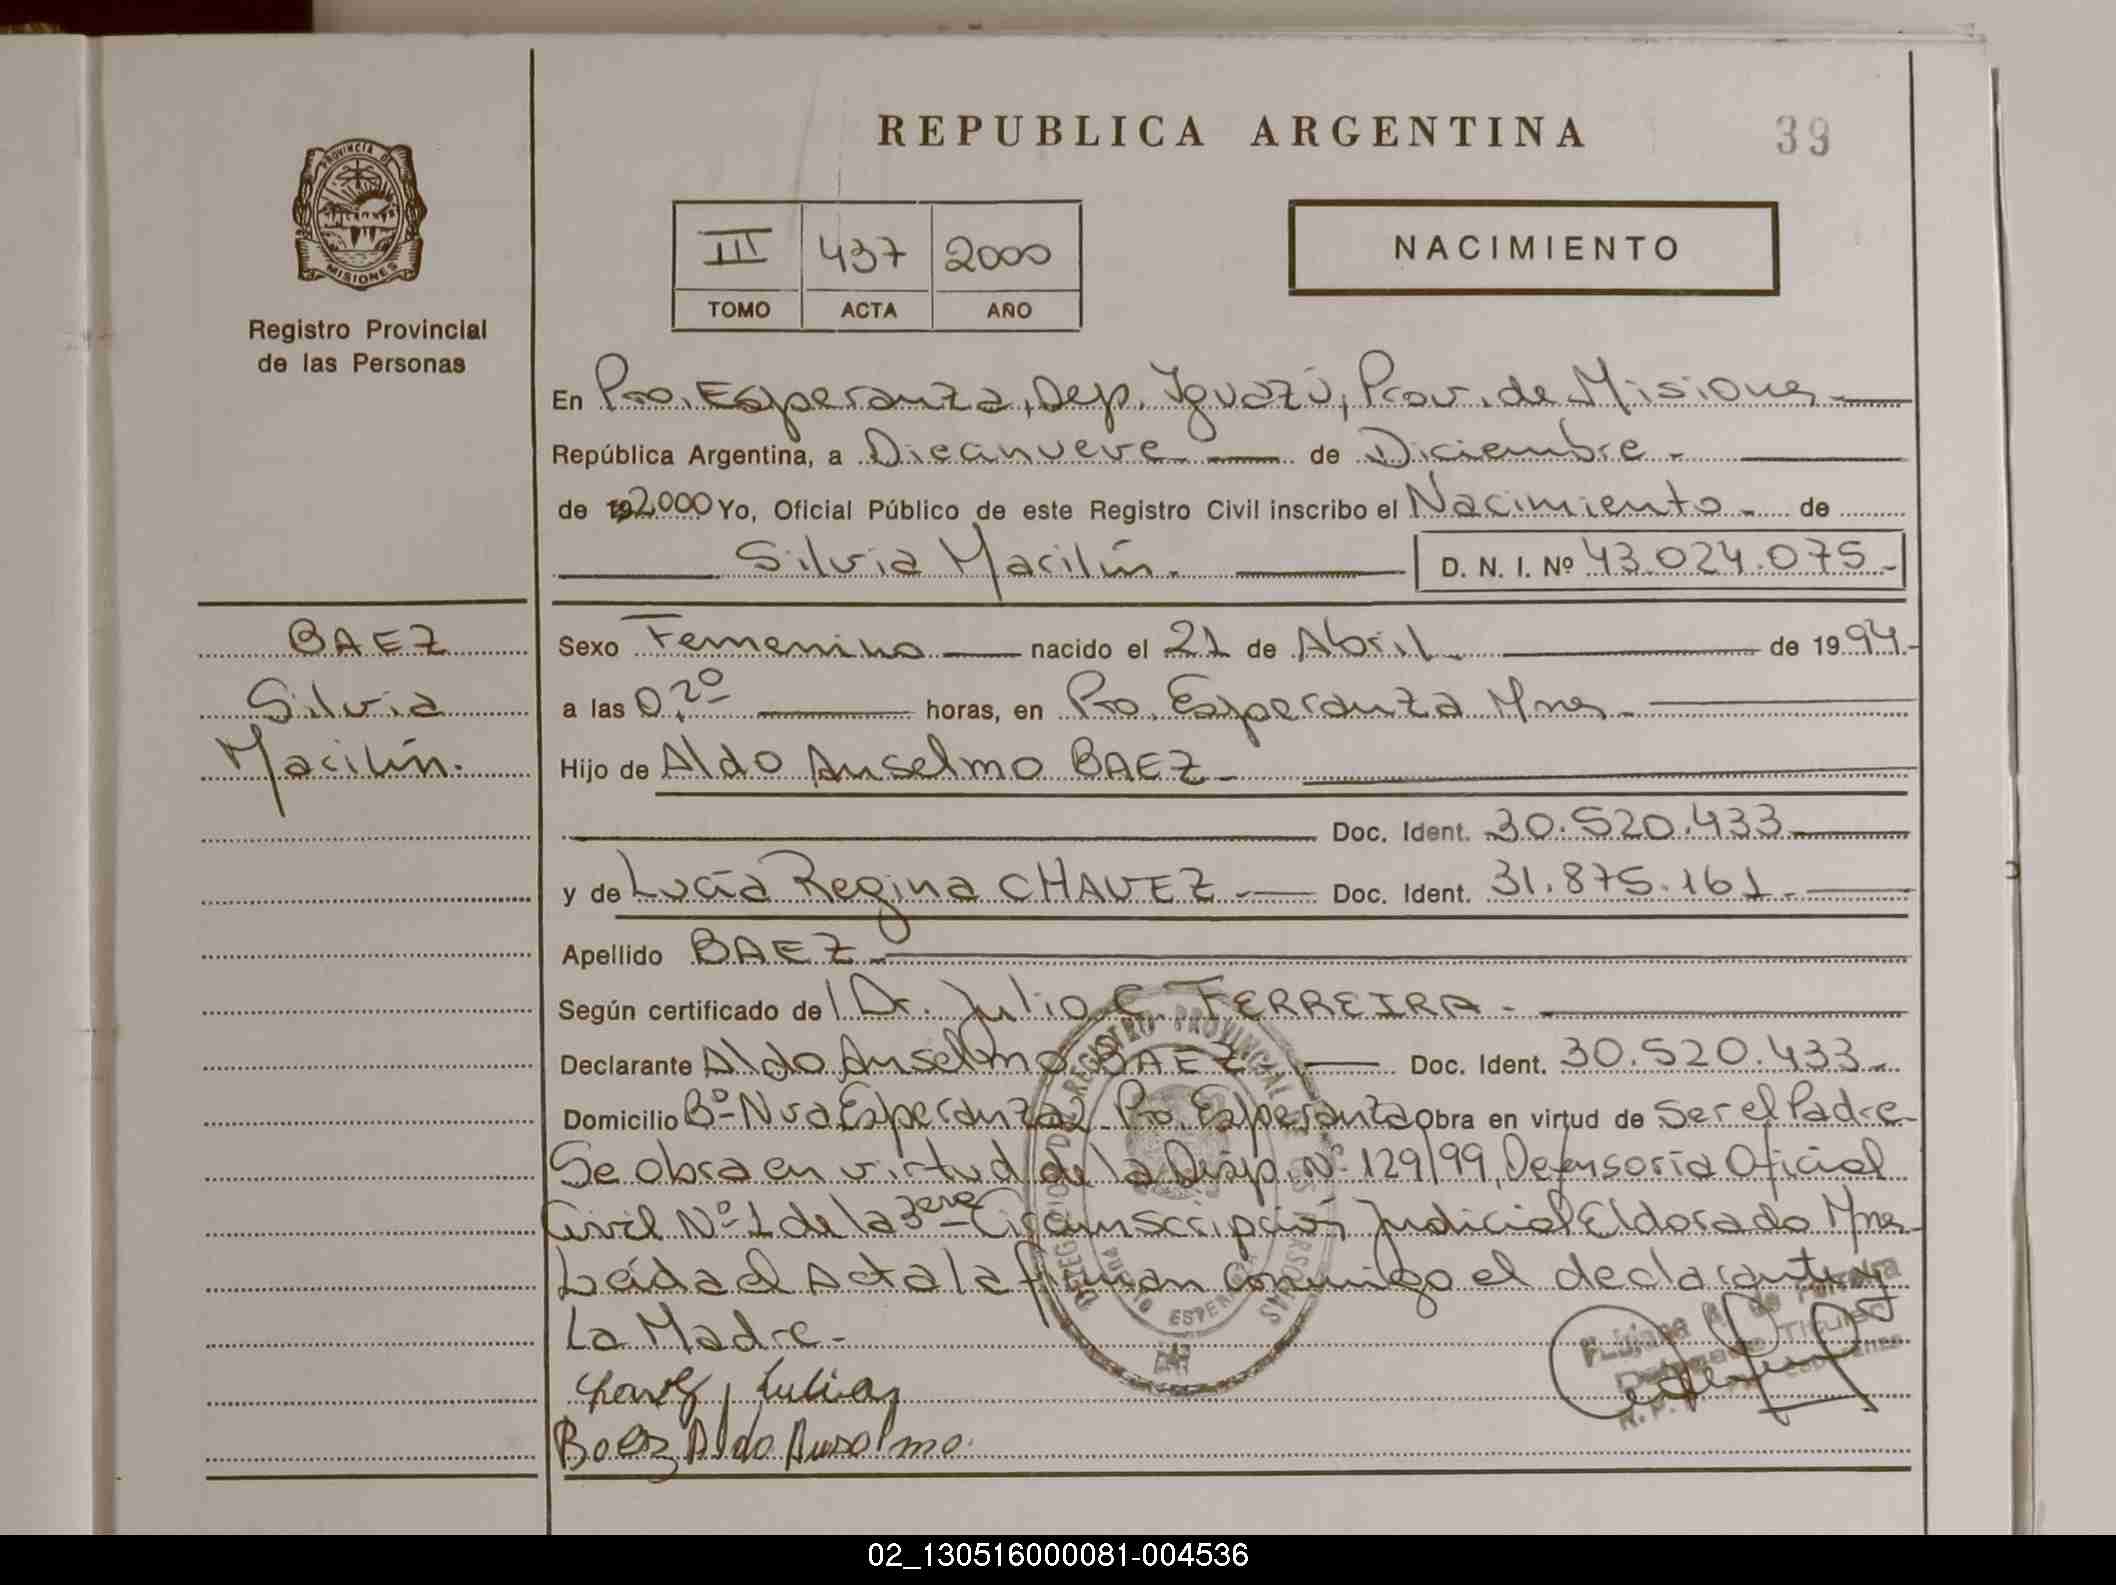 REPUBLICA ARGENTINA
39
PROVINCIA DE
MISIONES
Registro Provincial
de las Personas
III 437 2000
TOMO ACTA AÑO
NACIMIENTO
En Pto. Esperanza, Dep. Iguazú, Prov. de Misiones
República Argentina, a Diecinueve de Diciembre
de 192000 Yo, Oficial Público de este Registro Civil inscribo el Nacimiento de
Silvia Macilín. D. N. I. Nº 43.024.075
BAEZ
Silvia
Macilín.
Sexo Femenino nacido el 21 de Abril de 1994
a las 0,20 horas, en Pto. Esperanza Mnes
Hijo de Aldo Anselmo BAEZ
Doc. Ident. 30.520.433
y de Lucía Regina CHAVEZ Doc. Ident. 31.875.161
Apellido BAEZ
Según certificado de Dr. Julio C. FERREIRA
Declarante Aldo Anselmo BAEZ Doc. Ident. 30.520.433
Domicilio Bº Nva Esperanza Pto. Esperanza Obra en virtud de Ser el Padre
Se obra en virtud de la Disp. Nº 129/99, Defensoría Oficial
Civil Nº 1 de la 3era Circunscripción Judicial Eldorado Mnes
Leída el Acta la firman conmigo el declarante y
La Madre.
Baez Aldo Anselmo.
02_130516000081-004536